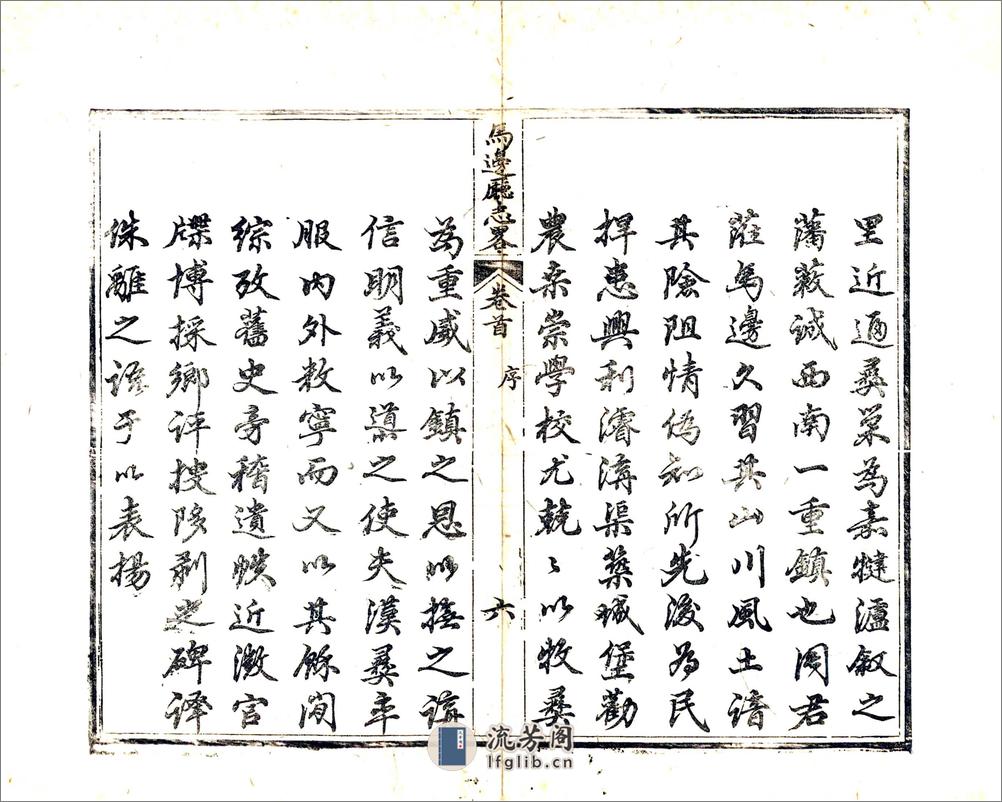 里近逼彝巢為嘉犍瀘敘之
藩蔽誠西南一重鎮也周君
蒞馬邊久習其山川風土諳
其險阻情偽知所先後為民
捍患興利濬溝渠築城堡勸
農桑崇學校尤兢〻以牧彝
馬邊廳志畧
卷首
序
六
為重威以鎮之恩以撫之
信明義以導之使夫漢彝率
服內外敉寧而又以其餘閒
綜攷舊史旁稽遺帙近徵官
牒博採鄉評搜殘剝之碑譯
侏離之諺于以表揚
流芳阁
lfglib.cn